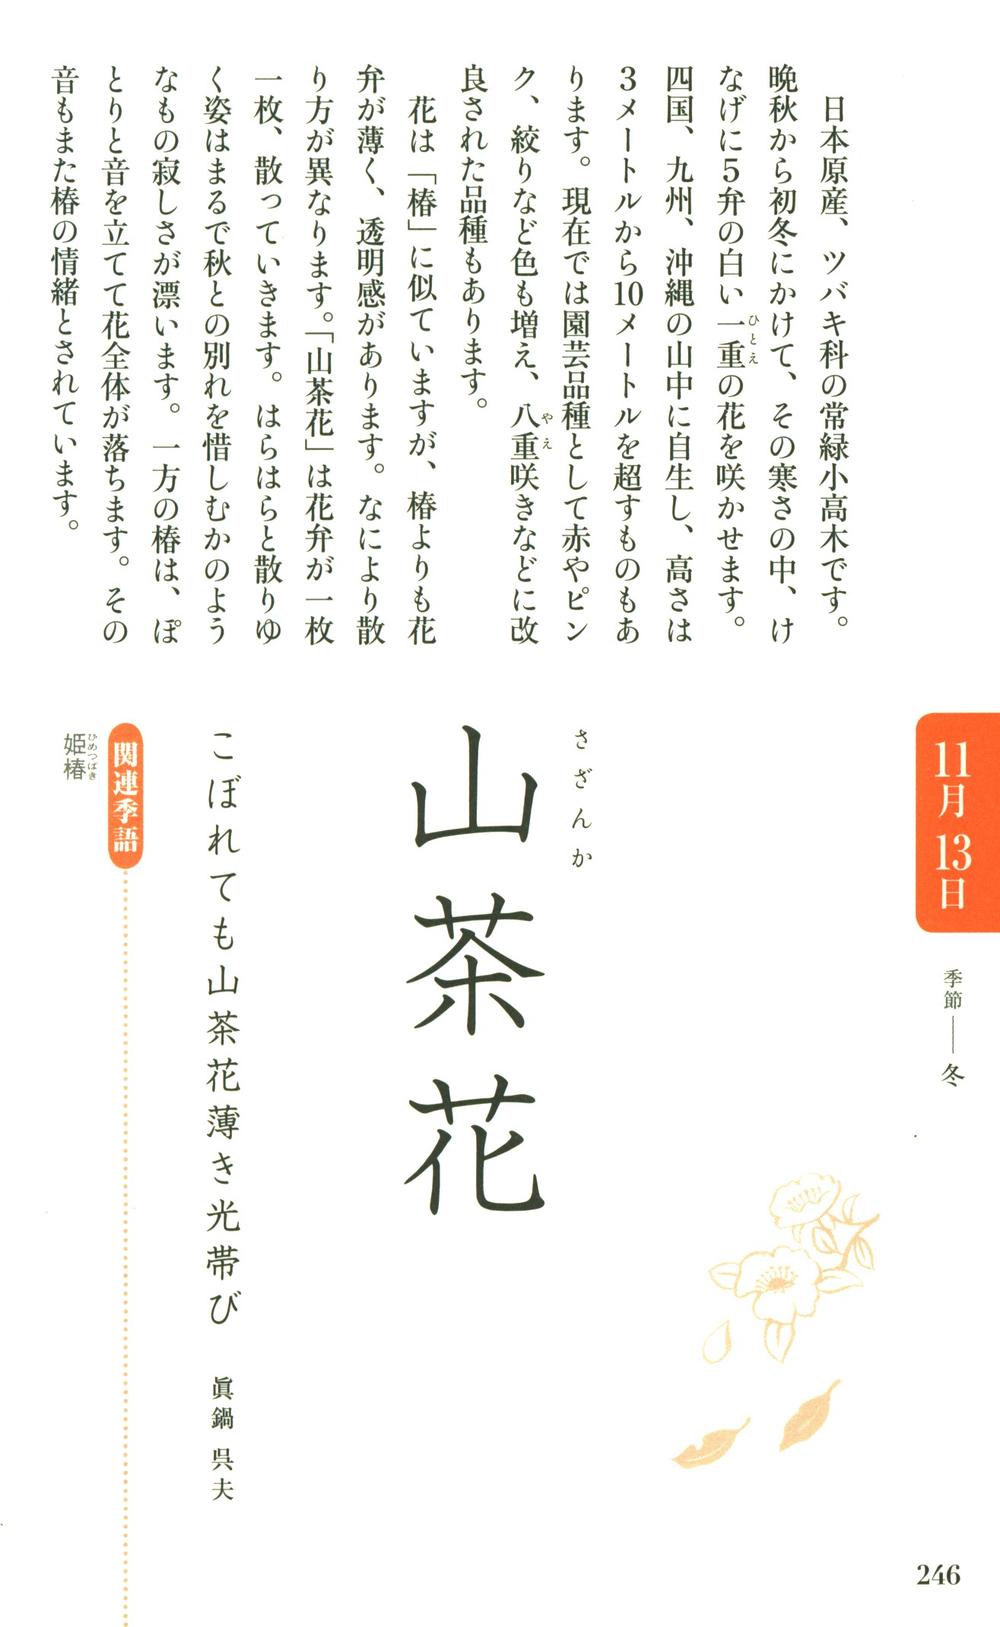 日本原産、ツバキ科の常緑小高木です。
晩秋から初冬にかけて、その寒さの中、け
なげに5弁の白い一重の花を咲かせます。
ひとえ
四国、九州、沖縄の山中に自生し、高さは
3メートルから10メートルを超すものもあ
ります。現在では園芸品種として赤やピン
ク、絞りなど色も増え、八重咲きなどに改
やえ
良された品種もあります。
花は「椿」に似ていますが、椿よりも花
弁が薄く、透明感があります。なにより散
り方が異なります。「山茶花」は花弁が一枚
一枚、散っていきます。はらはらと散りゆ
く姿はまるで秋との別れを惜しむかのよう
なもの寂しさが漂います。一方の椿は、ぽ
とりと音を立てて花全体が落ちます。その
音もまた椿の情緒とされています。
11月13日
季節――冬
さざんか
山茶花
こぼれても山茶花薄き光帯び 眞鍋 呉夫
関連季語
ひめつばき
姫椿
246